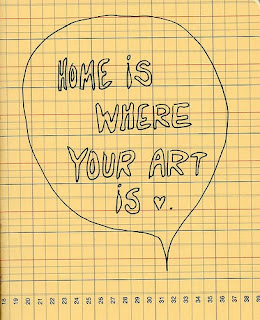 HOME iS
WHERE
YOUR ART
iS ♥.
18 19 20 21 22 23 24 25 26 27 28 29 30 31 32 33 34 35 36 37 38 39